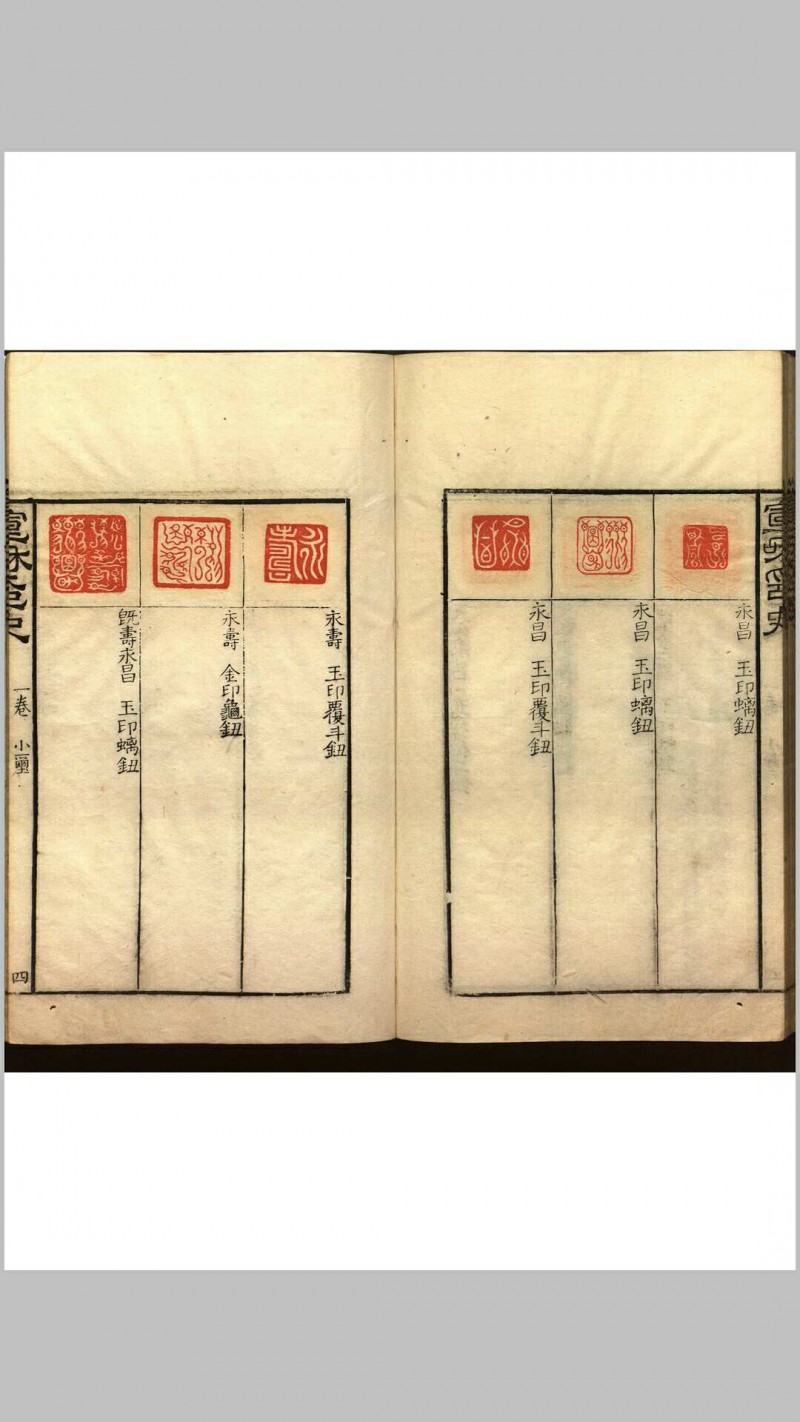 宣和印史
永昌　玉印螭鈕
永昌　玉印螭鈕
永昌　玉印覆斗鈕
永壽　玉印覆斗鈕
永壽　金印龜鈕
既壽永昌　玉印螭鈕
宣和印史
一卷　小璽
四